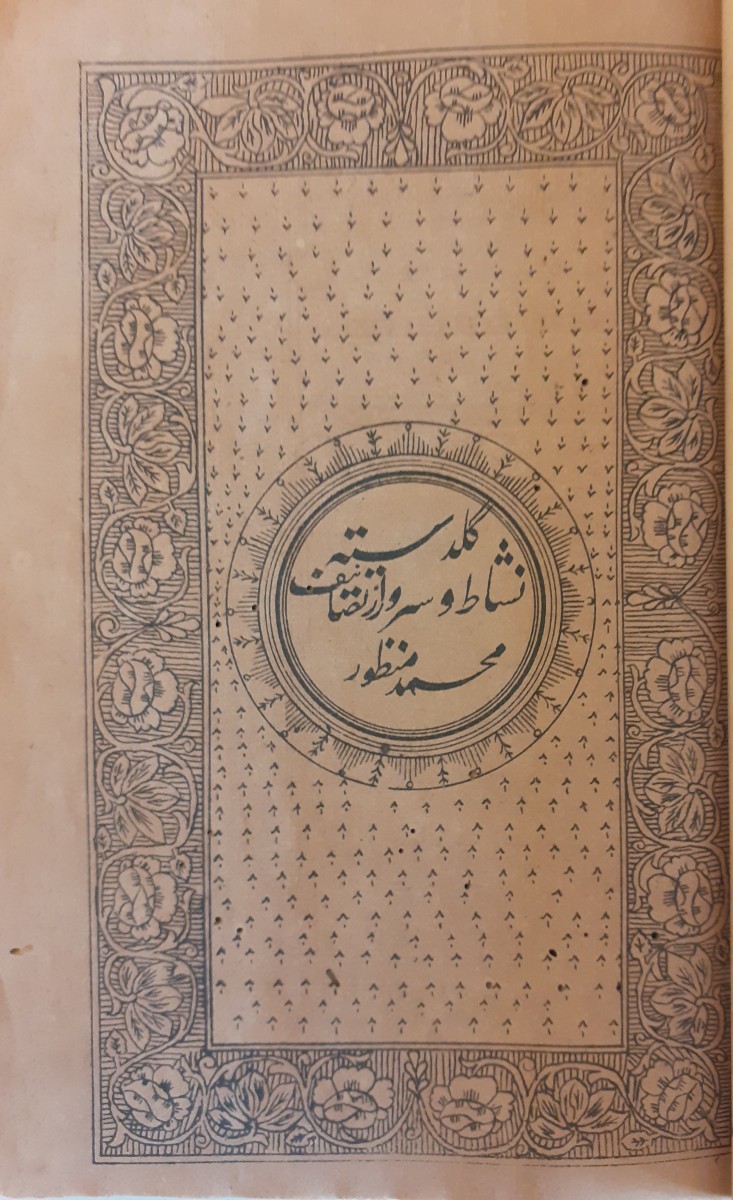 گلدسته
نشاط و سرور از تصانیف
محمد منظور